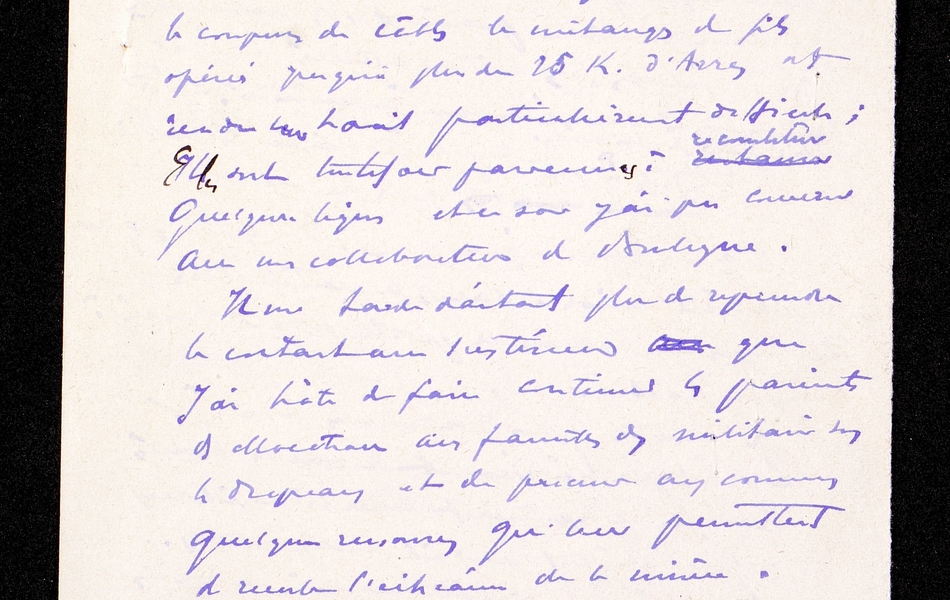 la coupure de câbles le mélange de fils
opérés jusqu'à plus de 25 K. d'Arras et
rendu leur travail particulièrement difficile ;
Elles sont toutefois parvenues à reconstituer
quelques lignes et ce soir j'ai pu causer
avec mes collaborateurs de Boulogne .
Il me tarde d'autant plus de reprendre
le contact avec l'extérieur que
j'ai hâte de faire continuer les paiements
d'allocations aux familles des militaires sous
les drapeaux et de procurer aux communes
quelques ressources qui leur permettent
de reculer l'échéance de la misère .